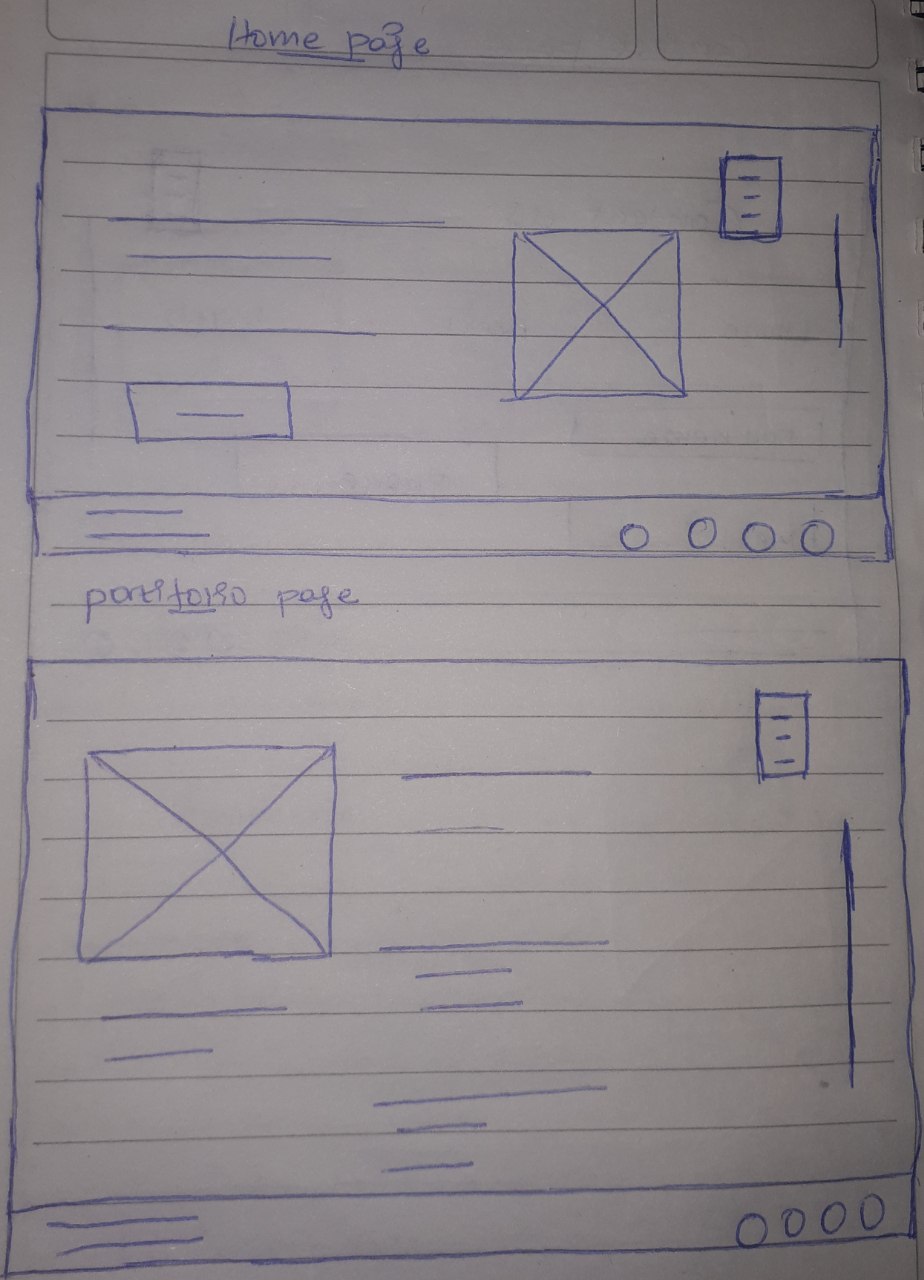 Home page
portfolio page